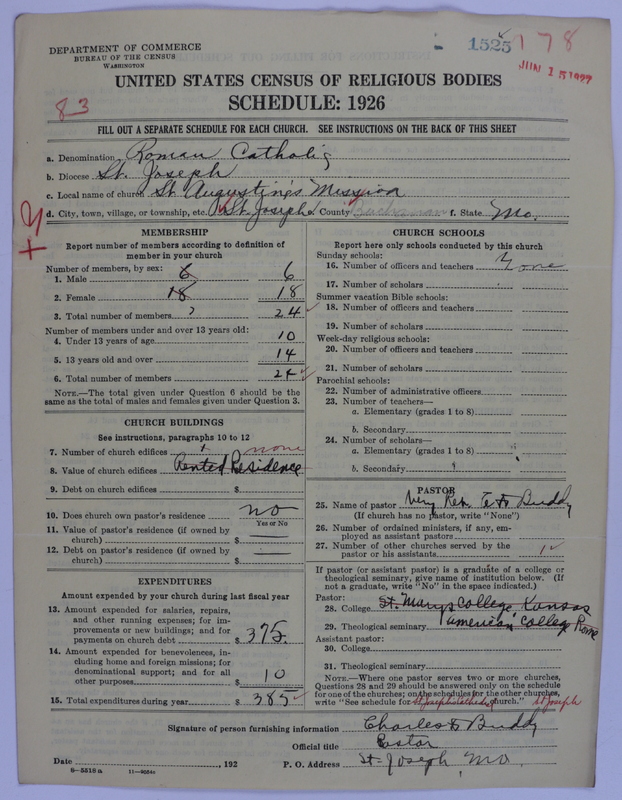 DEPARTMENT OF COMMERCE
BUREAU OF THE CENSUS
WASHINGTON
1525
178
JUN 15 1927
UNITED STATES CENSUS OF RELIGIOUS BODIES
SCHEDULE: 1926
83
FILL OUT A SEPARATE SCHEDULE FOR EACH CHURCH. SEE INSTRUCTIONS ON THE BACK OF THIS SHEET
a. Denomination Roman Catholic
b. Diocese St. Joseph
c. Local name of church St Augustine's Mission
d. City, town, village, or township, etc. St. Joseph e. County Buchanan f. State Mo.
MEMBERSHIP
Report number of members according to definition of
member in your church
Number of members, by sex:
1. Male 6 6
2. Female 18 18
3. Total number of members 24
Number of members under and over 13 years old:
4. Under 13 years of age 10
5. 13 years old and over 14
6. Total number of members 24
NOTE.—The total given under Question 6 should be
same as the total of males and females given under Question 3.
CHURCH BUILDINGS
See instructions, paragraphs 10 to 12
7. Number of church edifices none
8. Value of church edifices Rented Residence
9. Debt on church edifices $
10. Does church own pastor's residence no
Yes or No
11. Value of pastor's residence (if owned by
church) $ —
12. Debt on pastor's residence (if owned by
church) $ —
EXPENDITURES
Amount expended by your church during last fiscal year
13. Amount expended for salaries, repairs,
and other running expenses; for im-
provements or new buildings; and for
payments on church debt $ 375.
14. Amount expended for benevolences, in-
cluding home and foreign missions; for
denominational support; and for all
other purposes $ 10
15. Total expenditures during year $ 385
CHURCH SCHOOLS
Report here only schools conducted by this church
Sunday schools:
16. Number of officers and teachers None
17. Number of scholars
Summer vacation Bible schools:
18. Number of officers and teachers
19. Number of scholars
Week-day religious schools:
20. Number of officers and teachers
21. Number of scholars
Parochial schools:
22. Number of administrative officers
23. Number of teachers—
a. Elementary (grades 1 to 8)
b. Secondary
24. Number of scholars—
a. Elementary (grades 1 to 8)
b. Secondary
PASTOR
25. Name of pastor Very Rev. Buddy
(If church has no pastor, write "None")
26. Number of ordained ministers, if any, em-
ployed as assistant pastors
27. Number of other churches served by the
pastor or his assistants 1
If pastor (or assistant pastor) is a graduate of a college or
theological seminary, give name of institution below. (If
not a graduate, write "No" in the space indicated.)
Pastor:
28. College St. Marys College, Kansas
29. Theological seminary American College Rome
Assistant pastor:
30. College
31. Theological seminary
NOTE.—Where one pastor serves two or more churches,
Questions 28 and 29 should be answered only on the schedule
for one of the churches; on the schedules for the other churches,
write "See schedule for St Joseph Cathedral church." St Joseph
Signature of person furnishing information Charles F Buddy
Official title Pastor
Date , 192 P. O. Address St Joseph, Mo.
8—5518 a 11—9054c